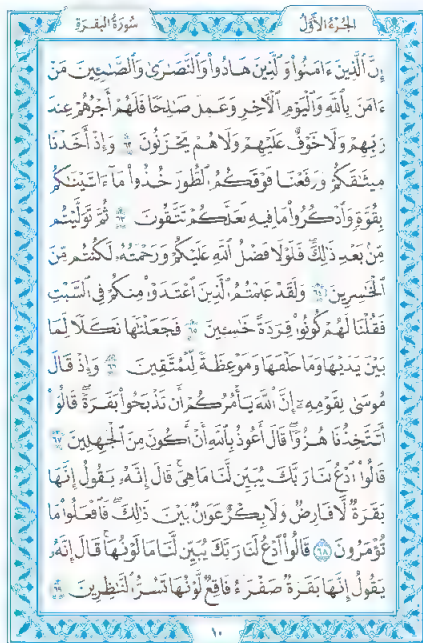 الجزء الأول
سورة البقرة
إِنَّ ٱلَّذِينَ ءَامَنُوا۟ وَٱلَّذِينَ هَادُوا۟ وَٱلنَّصَٰرَىٰ وَٱلصَّٰبِـِٔينَ مَنْ
ءَامَنَ بِٱللَّهِ وَٱلْيَوْمِ ٱلْـَٔاخِرِ وَعَمِلَ صَٰلِحًا فَلَهُمْ أَجْرُهُمْ عِندَ
رَبِّهِمْ وَلَا خَوْفٌ عَلَيْهِمْ وَلَا هُمْ يَحْزَنُونَ ٦٢ وَإِذْ أَخَذْنَا
مِيثَٰقَكُمْ وَرَفَعْنَا فَوْقَكُمُ ٱلطُّورَ خُذُوا۟ مَآ ءَاتَيْنَٰكُم
بِقُوَّةٍ وَٱذْكُرُوا۟ مَا فِيهِ لَعَلَّكُمْ تَتَّقُونَ ٦٣ ثُمَّ تَوَلَّيْتُم
مِّنۢ بَعْدِ ذَٰلِكَ ۖ فَلَوْلَا فَضْلُ ٱللَّهِ عَلَيْكُمْ وَرَحْمَتُهُۥ لَكُنتُم مِّنَ
ٱلْخَٰسِرِينَ ٦٤ وَلَقَدْ عَلِمْتُمُ ٱلَّذِينَ ٱعْتَدَوْا۟ مِنكُمْ فِى ٱلسَّبْتِ
فَقُلْنَا لَهُمْ كُونُوا۟ قِرَدَةً خَٰسِـِٔينَ ٦٥ فَجَعَلْنَٰهَا نَكَٰلًا لِّمَا
بَيْنَ يَدَيْهَا وَمَا خَلْفَهَا وَمَوْعِظَةً لِّلْمُتَّقِينَ ٦٦ وَإِذْ قَالَ
مُوسَىٰ لِقَوْمِهِۦٓ إِنَّ ٱللَّهَ يَأْمُرُكُمْ أَن تَذْبَحُوا۟ بَقَرَةً ۖ قَالُوٓا۟
أَتَتَّخِذُنَا هُزُوًا ۖ قَالَ أَعُوذُ بِٱللَّهِ أَنْ أَكُونَ مِنَ ٱلْجَٰهِلِينَ ٦٧
قَالُوا۟ ٱدْعُ لَنَا رَبَّكَ يُبَيِّن لَّنَا مَا هِىَ ۚ قَالَ إِنَّهُۥ يَقُولُ إِنَّهَا
بَقَرَةٌ لَّا فَارِضٌ وَلَا بِكْرٌ عَوَانٌۢ بَيْنَ ذَٰلِكَ ۖ فَٱفْعَلُوا۟ مَا
تُؤْمَرُونَ ٦٨ قَالُوا۟ ٱدْعُ لَنَا رَبَّكَ يُبَيِّن لَّنَا مَا لَوْنُهَا ۚ قَالَ إِنَّهُۥ
يَقُولُ إِنَّهَا بَقَرَةٌ صَفْرَآءُ فَاقِعٌ لَّوْنُهَا تَسُرُّ ٱلنَّٰظِرِينَ ٦٩
١٠